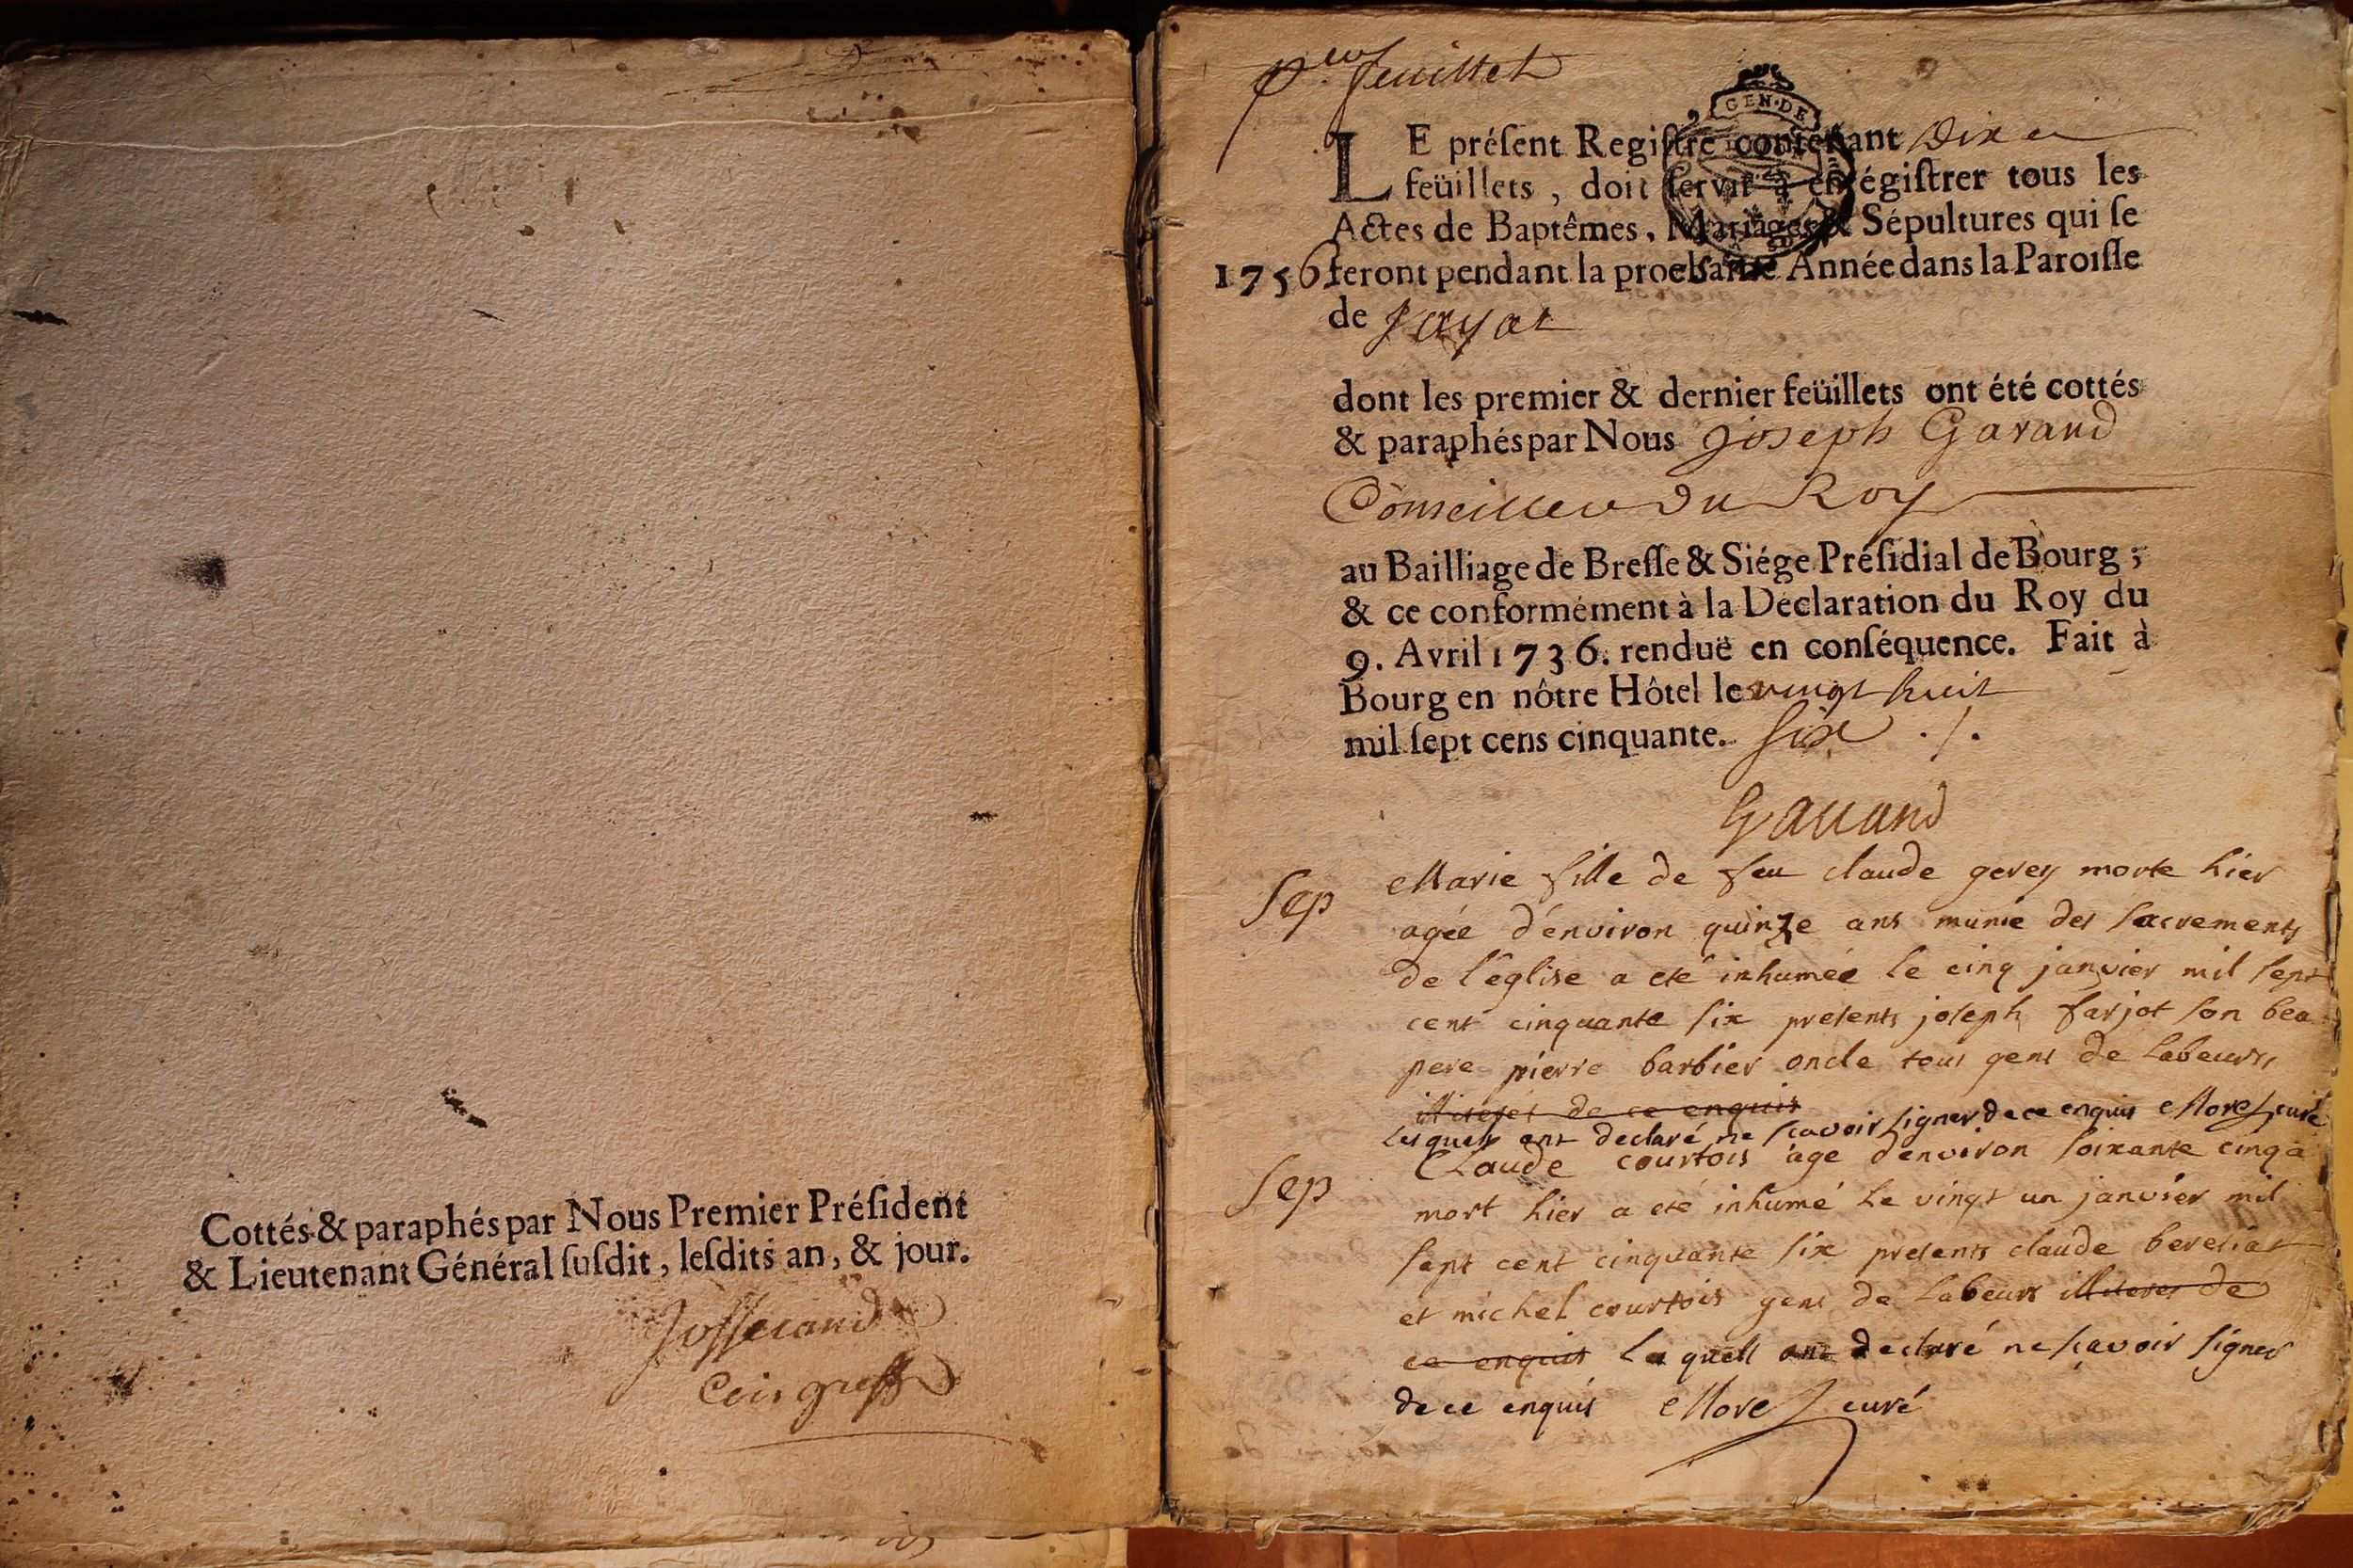 Cottés & paraphés par Nous Premier Préſident
& Lieutenant Général ſuſdit, leſdits an, & jour.
Joſſerand
p.er feuillet
GEN·DE
LE préſent Regiſtre contenant Dix
feüillets, doit ſervir à enrégiſtrer tous les
Actes de Baptêmes, Mariages & Sépultures qui ſe
1756 feront pendant la prochaine Année dans la Paroiſſe
de Jayat
dont les premier & dernier feüillets ont été cottés
& paraphés par Nous Joseph Garaud
Conseiller du Roy
au Bailliage de Breſſe & Siége Préſidial de Bourg;
& ce conformément à la Déclaration du Roy du
9. Avril 1736. renduë en conſéquence. Fait à
Bourg en nôtre Hôtel le vingt huit
mil ſept cens cinquante. six ./.
Garaud
Sep
Marie fille de feu claude gerey morte hier
agée d'énviron quinze ans munie des sacrements
de l'église a eté inhumée le cinq janvier mil sept
cent cinquante six presents joseph farjot son bea
pere pierre barbier oncle tous gens de labeurs,
illiterés de ce enquis
lesquels ont declaré ne scavoir signer de ce enquis Morel curé
Sep
Claude courtois agé d'environ soixante cinq a
mort hier a eté inhumé le vingt un janvier mil
sept cent cinquante six presents claude bereliat
et michel courtois gens de labeurs illiteres de
ce enquis lesquels ont declaré ne sçavoir signer
de ce enquis Morel curé